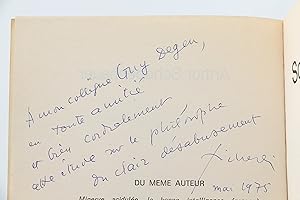 A mon collègue Guy Degen,
en toute amitié
et bien cordialement
cette étude sur le philosophe
du clair désabusement
DU MEME AUTEUR
mai 1975
Mineure acidulée, la bonne intelligence
S